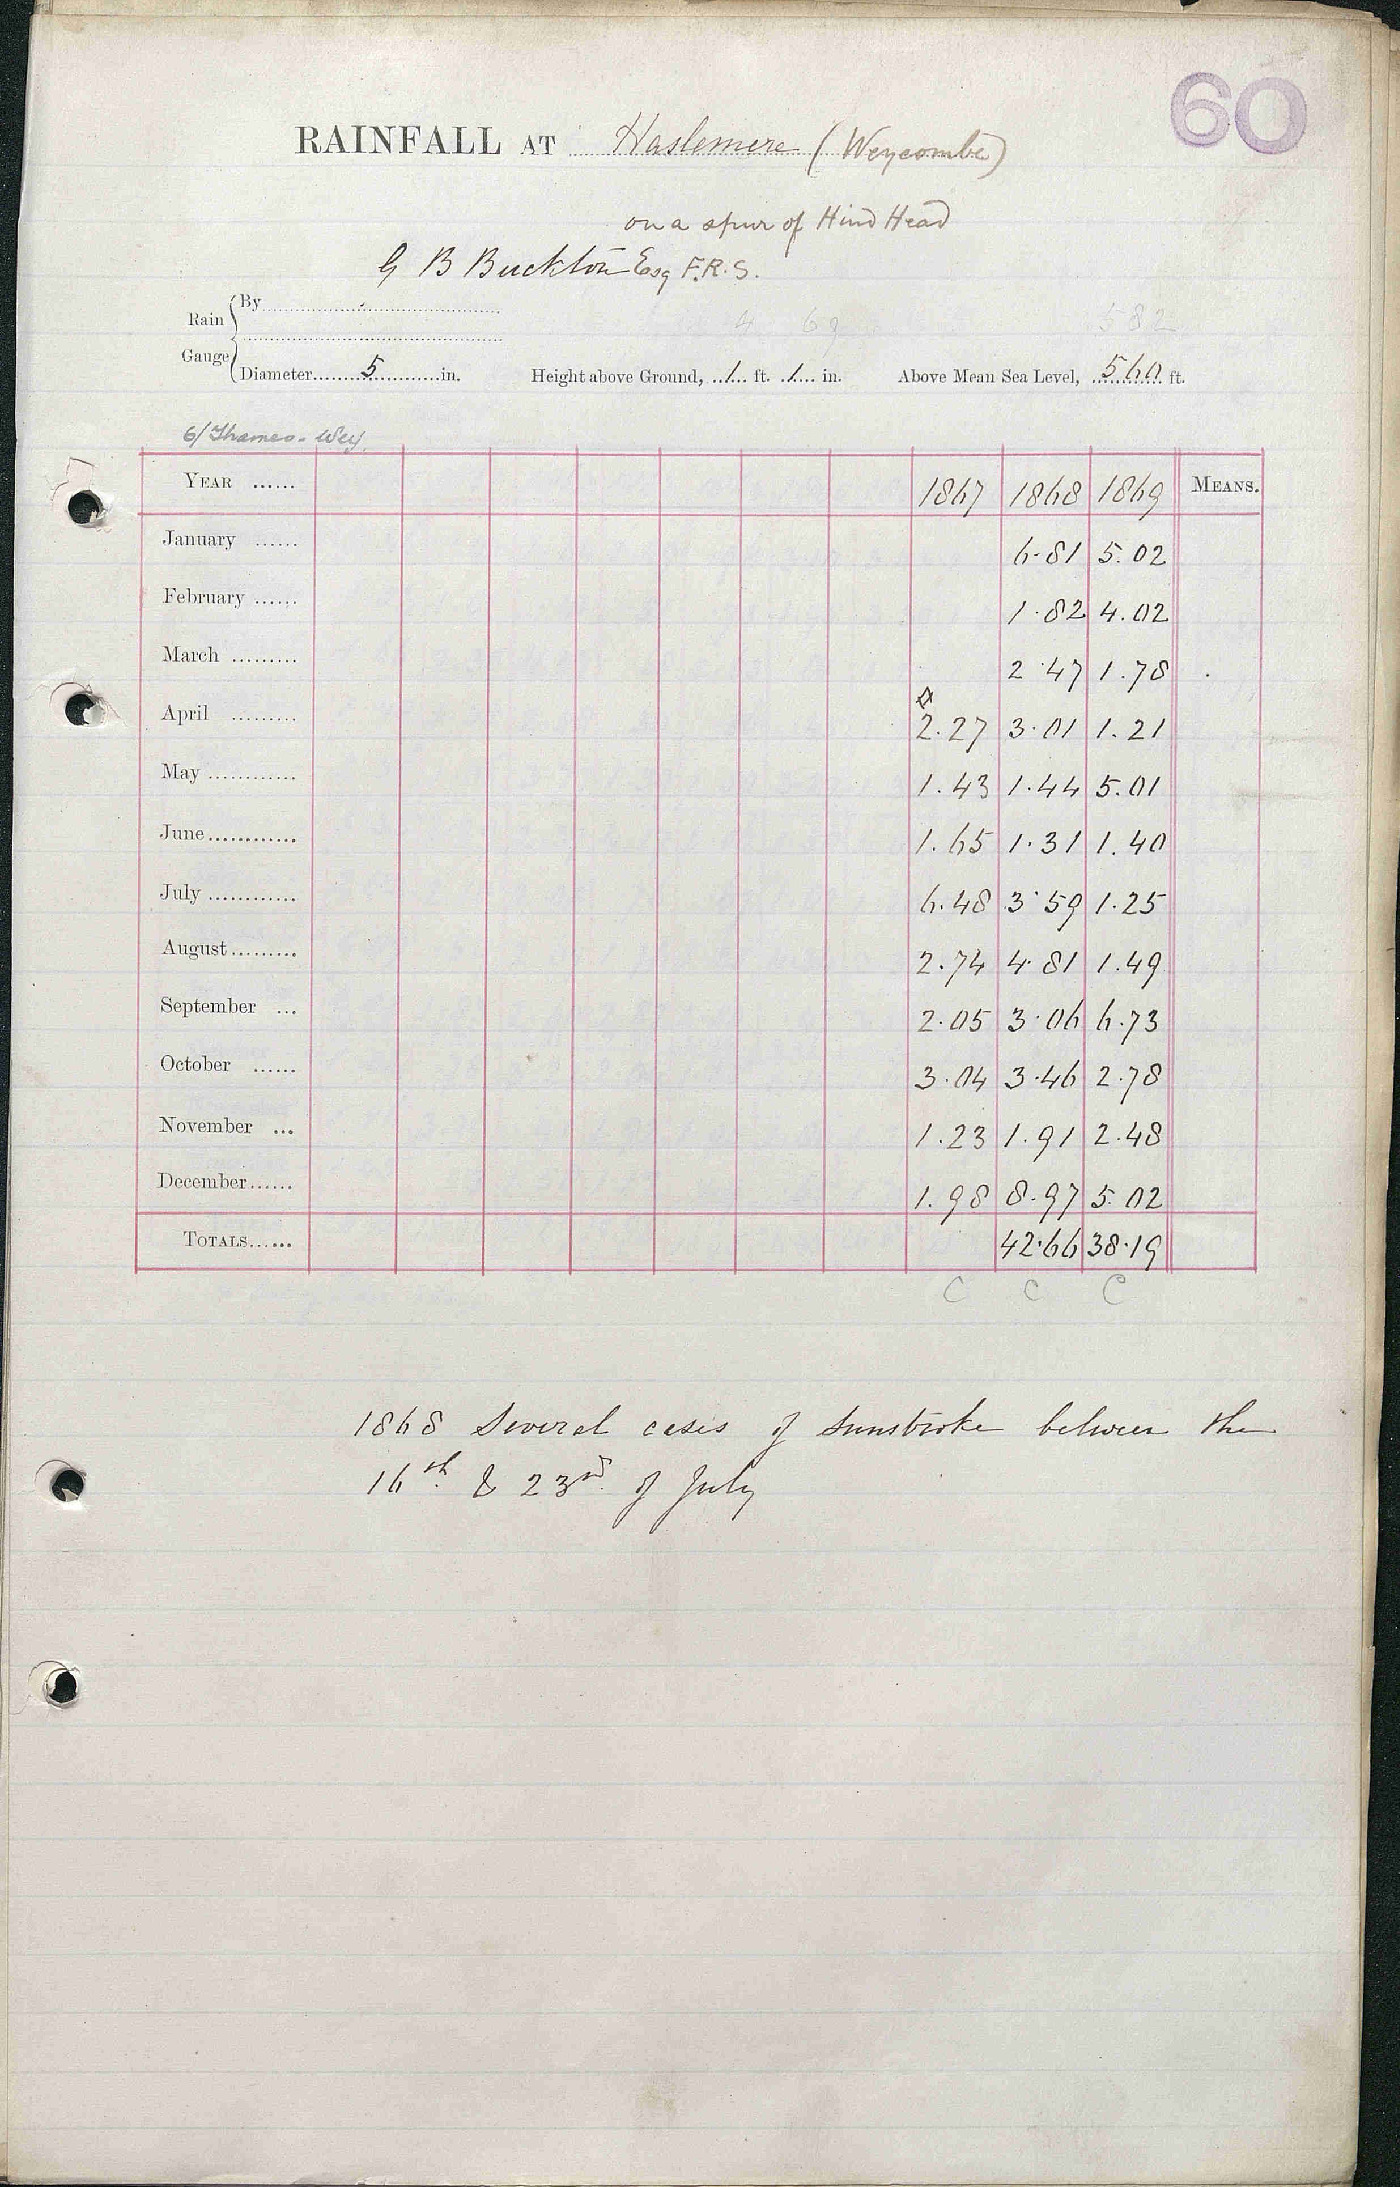 60
RAINFALL AT Haslemere (Weycombe)
on a spur of Hind Head
G B Buckton Esq F.R.S.
Rain Gauge
By
4 69 582
Diameter 5 in. Height above Ground, 1 ft. 1 in. Above Mean Sea Level, 560 ft.
6/Thames - Wey
YEAR ...... 1867 1868 1869 MEANS.
January ...... 6.81 5.02
February ...... 1.82 4.02
March ......... 2.47 1.78
April ......... 2.27 3.01 1.21
May ............ 1.43 1.44 5.01
June ............ 1.65 1.31 1.40
July ............ 6.48 3.59 1.25
August ......... 2.74 4.81 1.49
September ... 2.05 3.06 6.73
October ...... 3.04 3.46 2.78
November ... 1.23 1.91 2.48
December ...... 1.98 8.97 5.02
TOTALS ...... 42.66 38.19
C C C
1868 Several cases of sunstroke between the
16th & 23rd of July